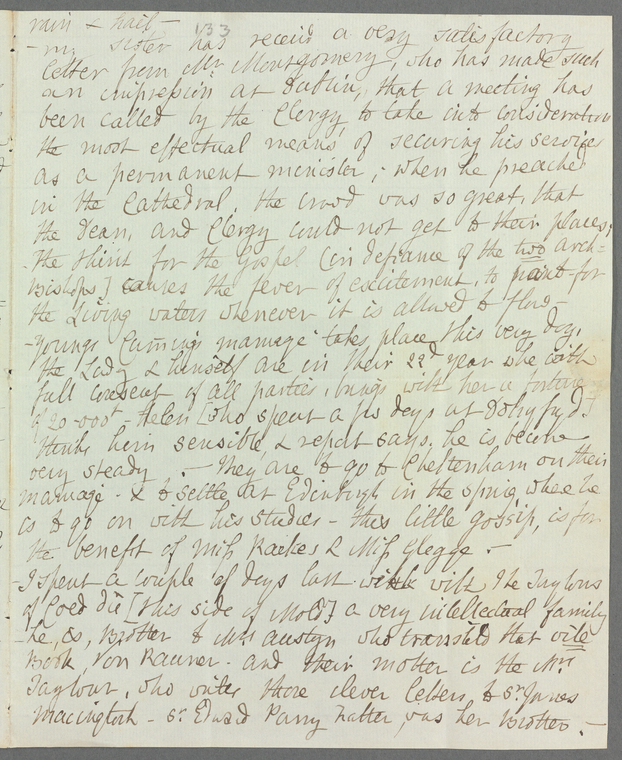 rain & hail —
133
— my sister has receiv'd a very satisfactory
letter from Mr Montgomery, who has made such
an impression at Dublin, that a meeting has
been called by the Clergy, to take into consideration
the most effectual means of securing his services
as a permanent minister; when he preached
in the Cathedral, the crowd was so great, that
the Dean, and Clergy could not get to their places;
- the thirst for the Gospel (in defiance of the two Arch=
Bishops] causes the fever of excitement, to pant for
the Living waters whenever it is allowed to flow —
- Young Cumming's marriage takes place this very day,
the Lady & himself are in their 22d year she with
full consent of all parties, brings with her a fortune
of 20-000£ - Helen [who spent a few days at
thinks him sensible, & report says, he is become
very steady — They are to go to Cheltenham on their
marriage - & to settle at Edinburgh in the spring where he
is to go on with his studies - this little gossip, is for
the benefit of Miss Raikes & Miss Glegge —
- I spent a couple of days last with the Taylours
of Coed dû [this side of Mold] a very intellectual family
- he, is, Brother to Mrs Austyn who translated that vile
Book, Von Raumer - and their mother is the Mrs
Taylour, who writes those clever letters, to Sr James
Maccingtosh - Sr Edward Parry Father, was her Brother. —